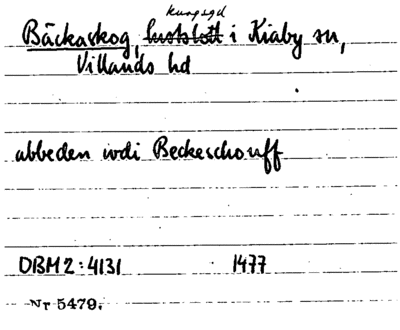 kungsgd
Bäckaskog, lustslott i Kiaby sn,
Villands hd
abbeden wdi Beckeschouff
DBM2:4131 1477
Nr 5479.